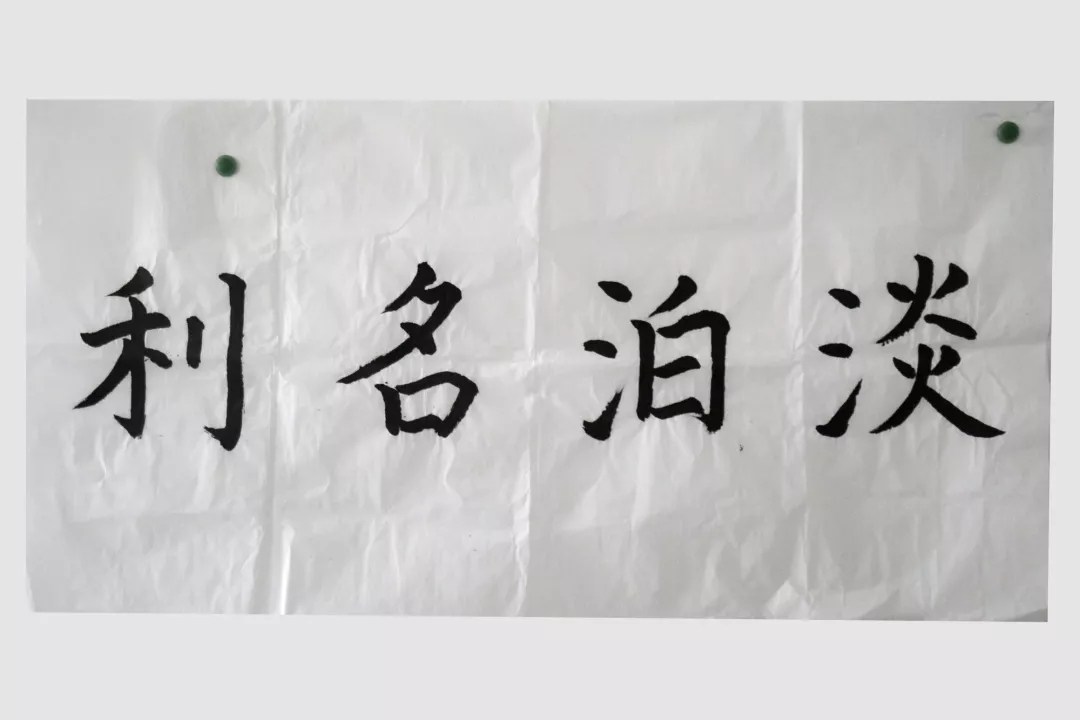 淡泊名利